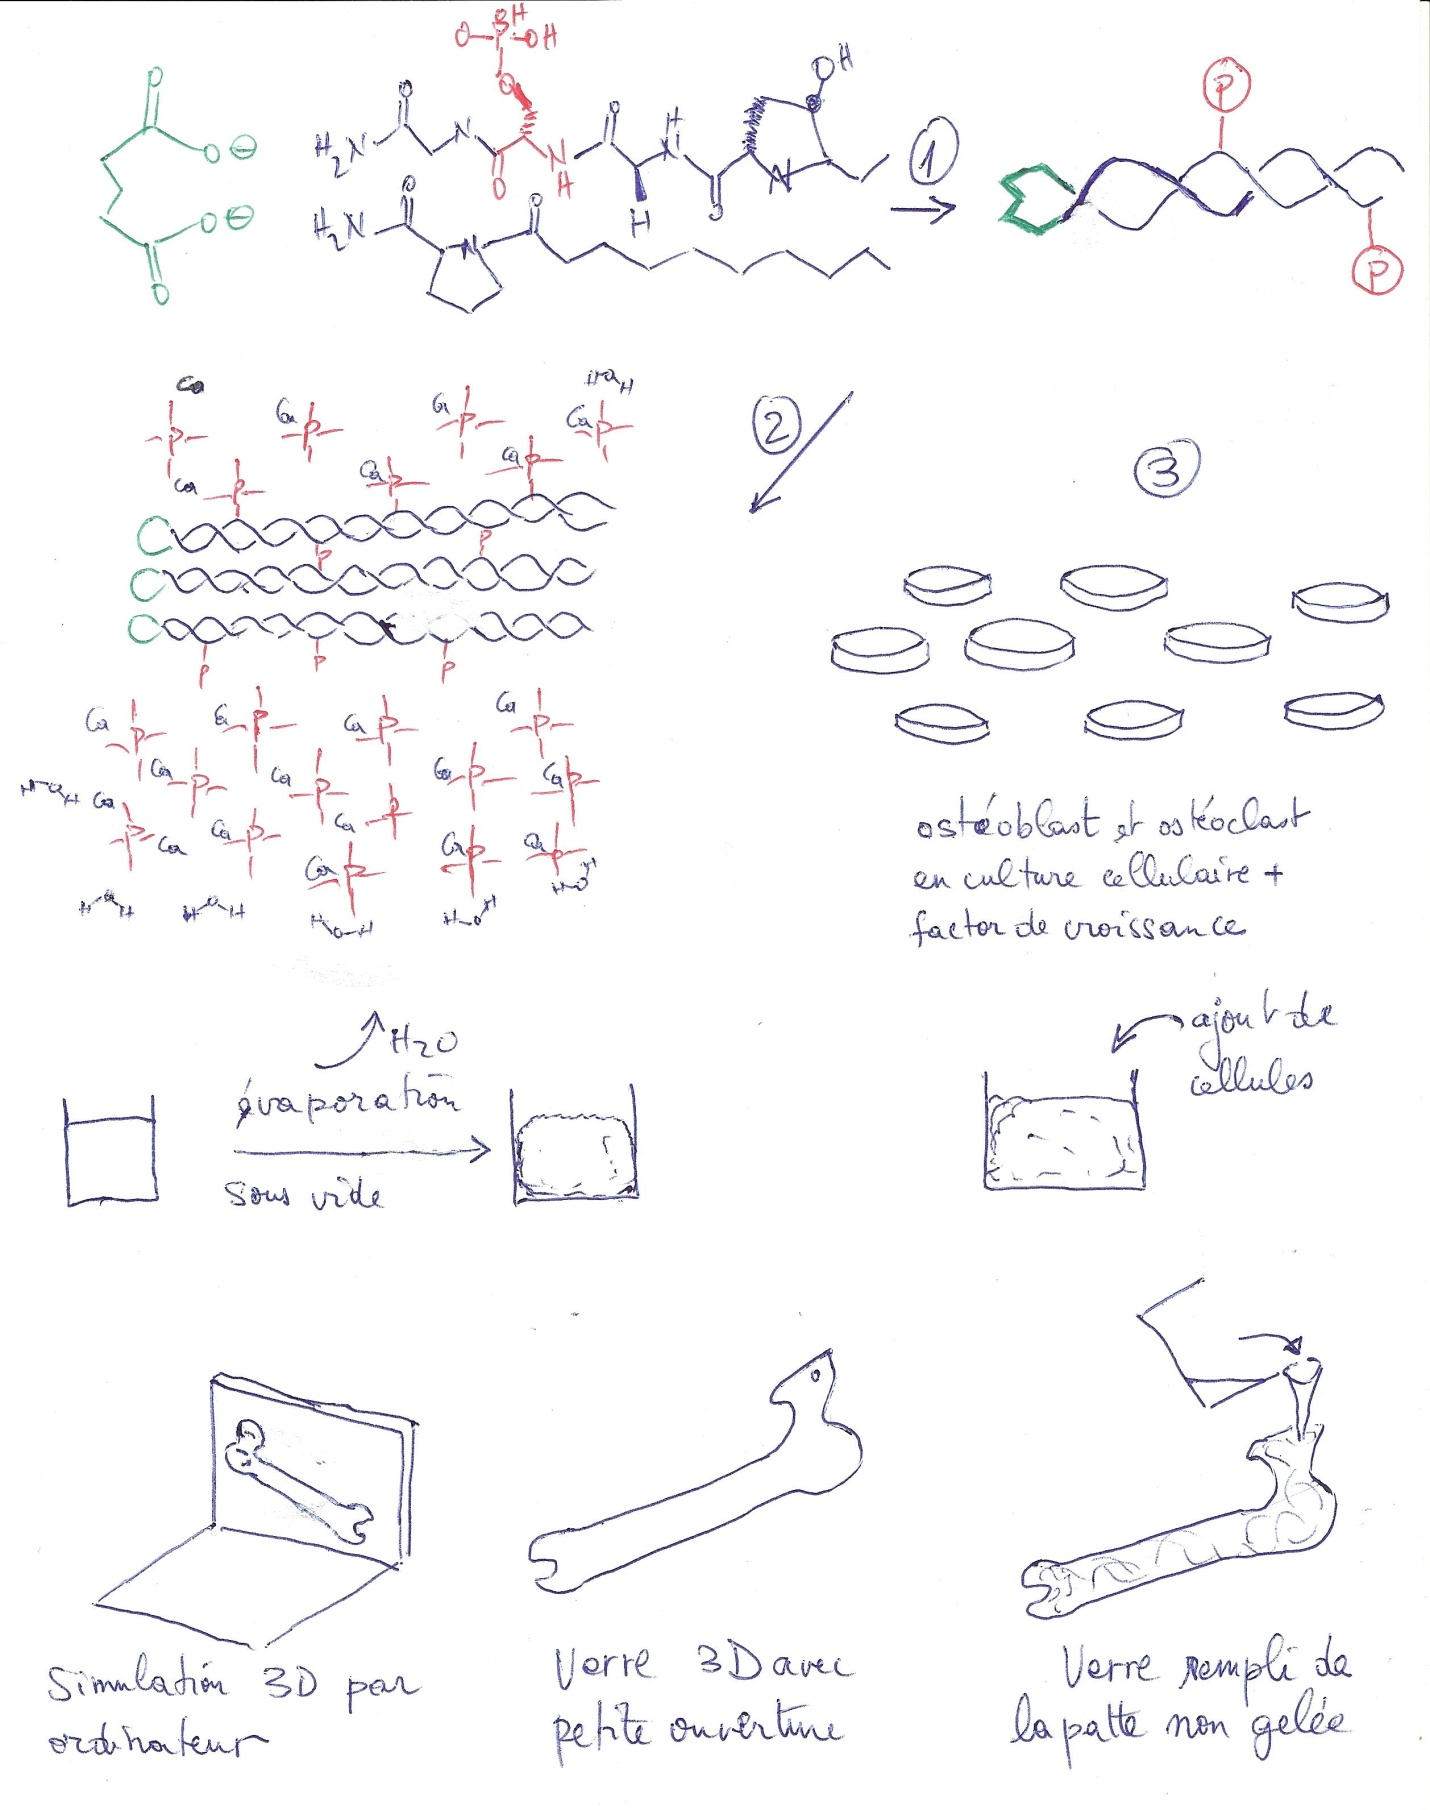 O
O ⊖
O ⊖
O
O
OH
OH
P
O
H₂N
O
N
O
N
H
O
H
N
H
O
N
OH
H₂N
O
N
O
①
P
P
②
③
Ca
Ca
Ca
Ca
H O H
P
P
P
P
Ca
Ca
Ca
P
P
P
P
P
P
P
P
Ca
Ca
Ca
P
P
P
P
Ca
Ca
Ca
Ca
P
P
P
P
H O H
Ca
Ca
Ca
Ca
Ca
P
P
P
P
P
P
H O H
H O H
H O H
H O H
H O H
ostéoblast et ostéoclast
en culture cellulaire +
factor de croissance
H₂O
évaporation
sous vide
ajout de
cellules
Simulation 3D par
ordinateur
Verre 3D avec
petite ouverture
Verre rempli de
la patte non gelée